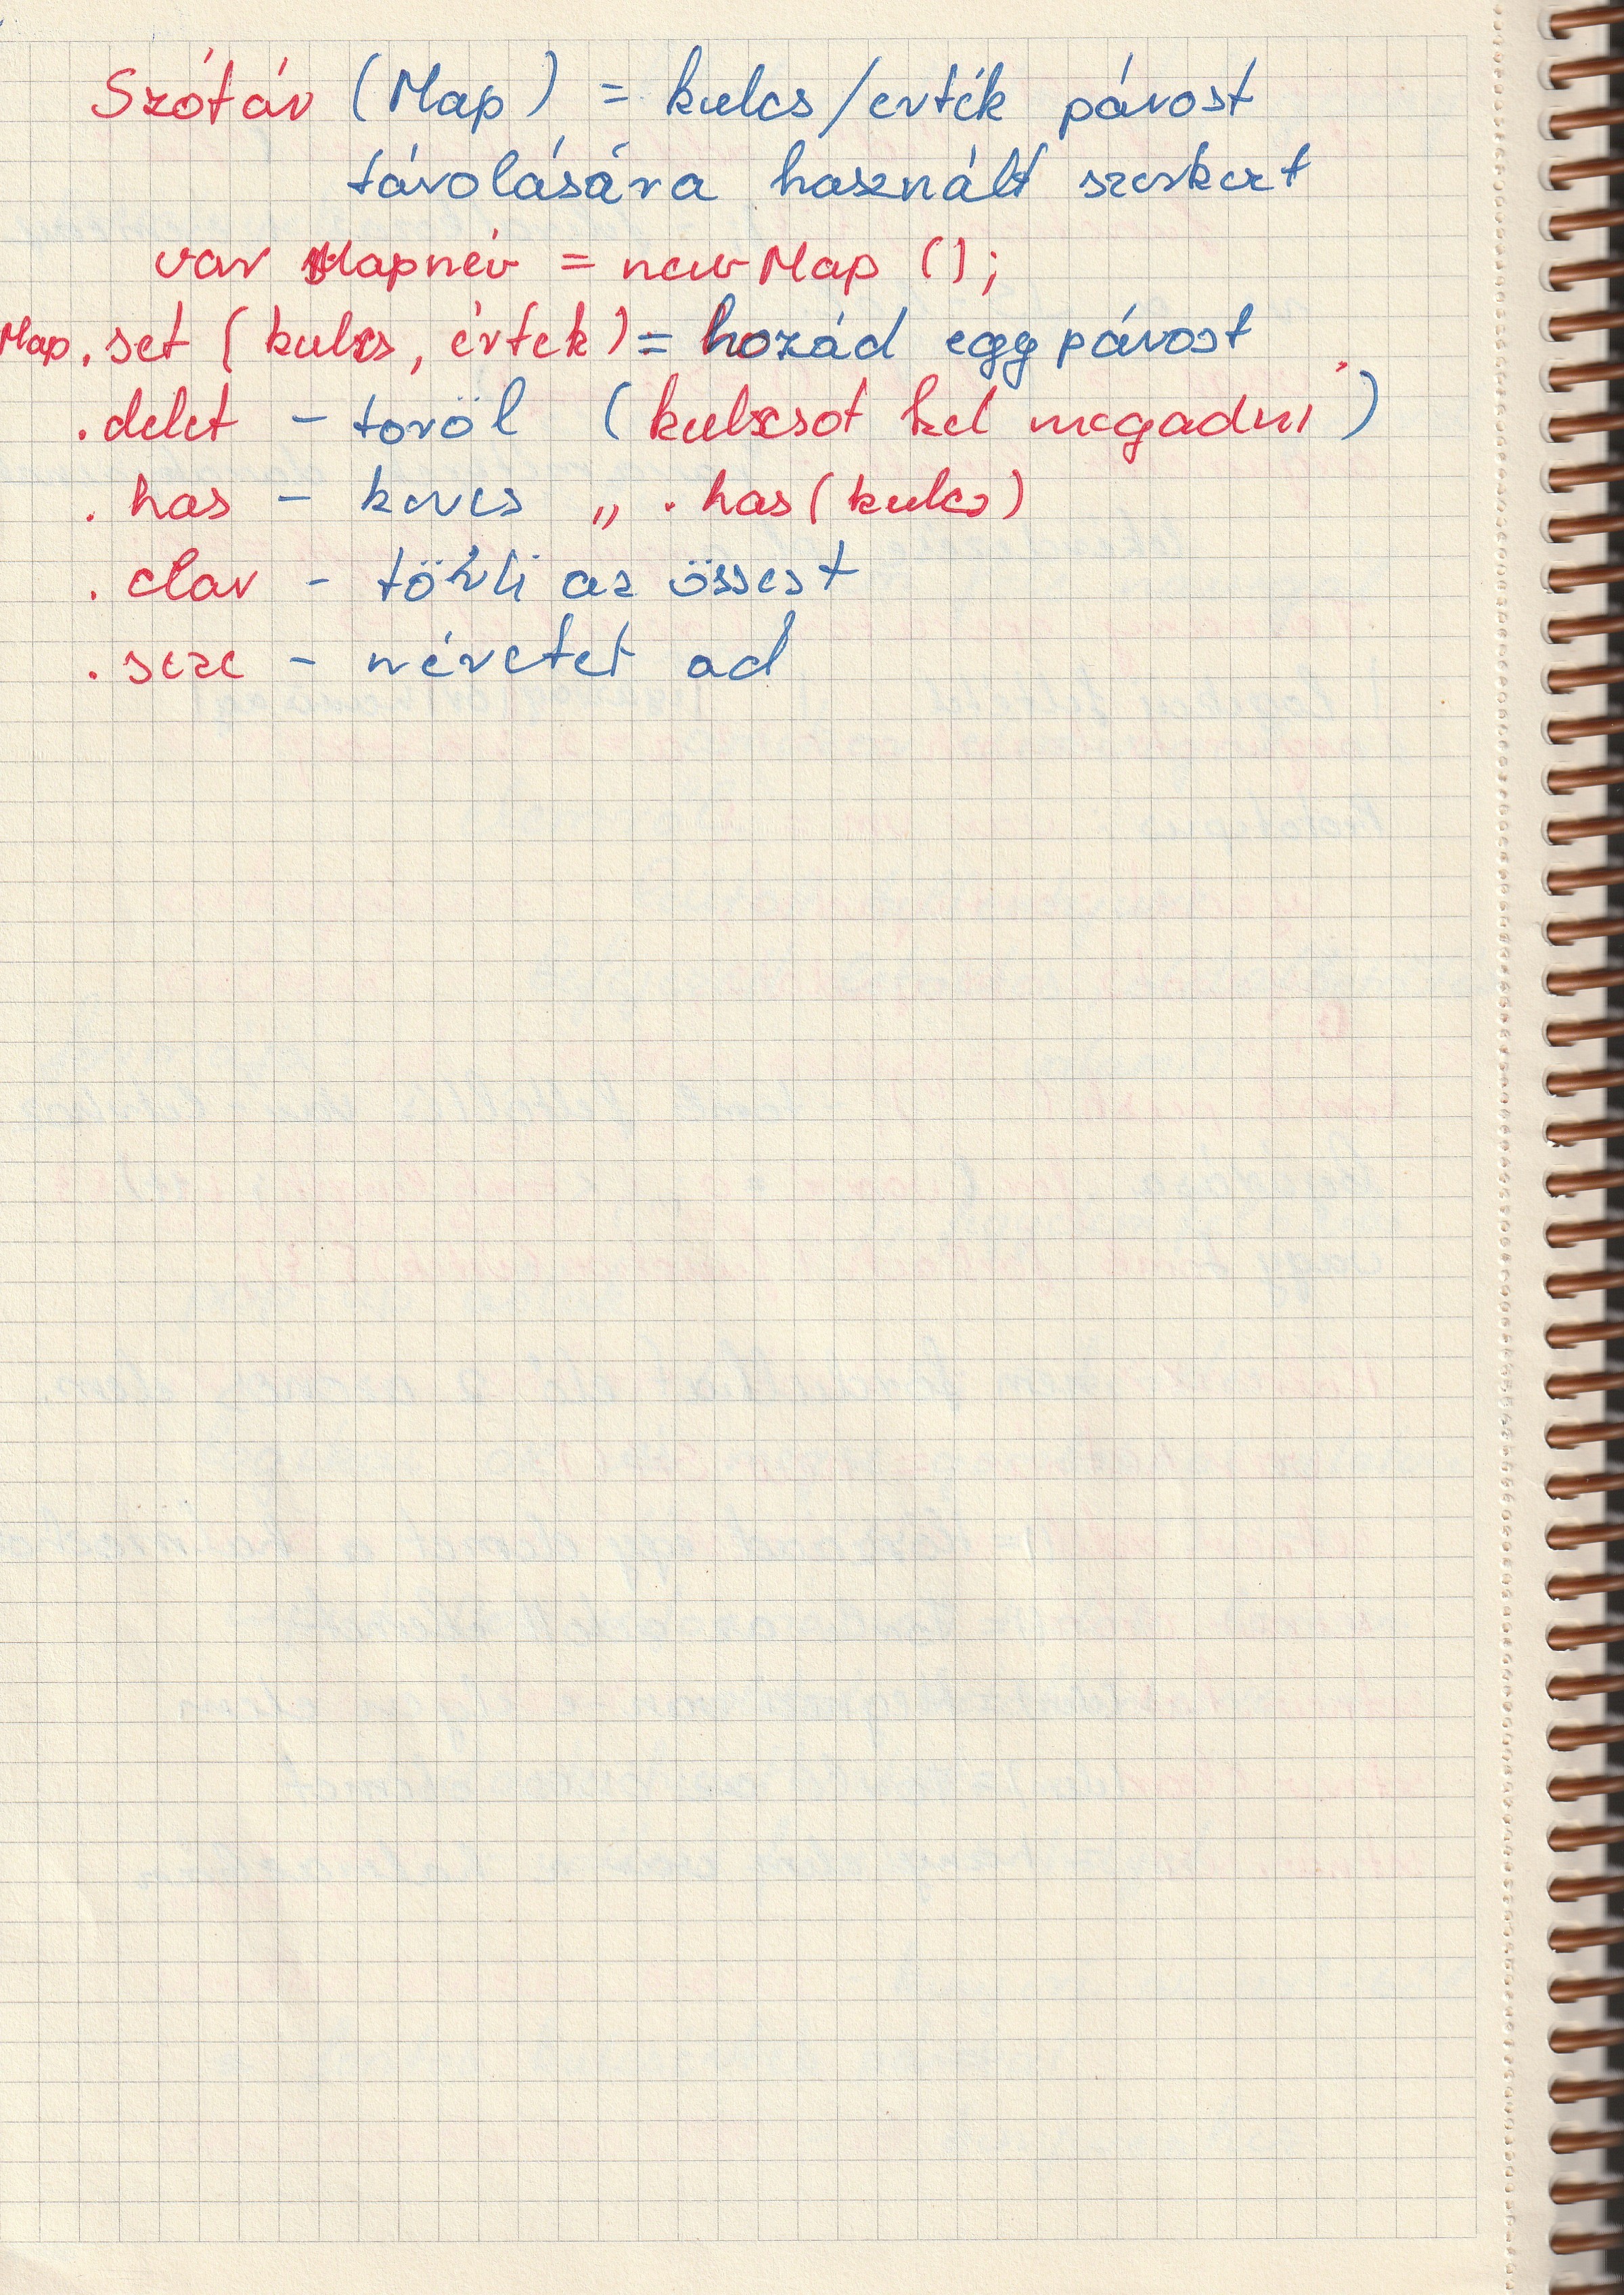 Szótár (Map) = kulcs/erték párost
tárolására használt szerkezt
var Mapnév = new Map ();
Map.set (kulcs, értek) = hozád egy párost
.delet - toröl (kulcsot kel megadni)
.has - keres „ .has (kulcs)
.clar - törli az össest
.seze - méretet ad